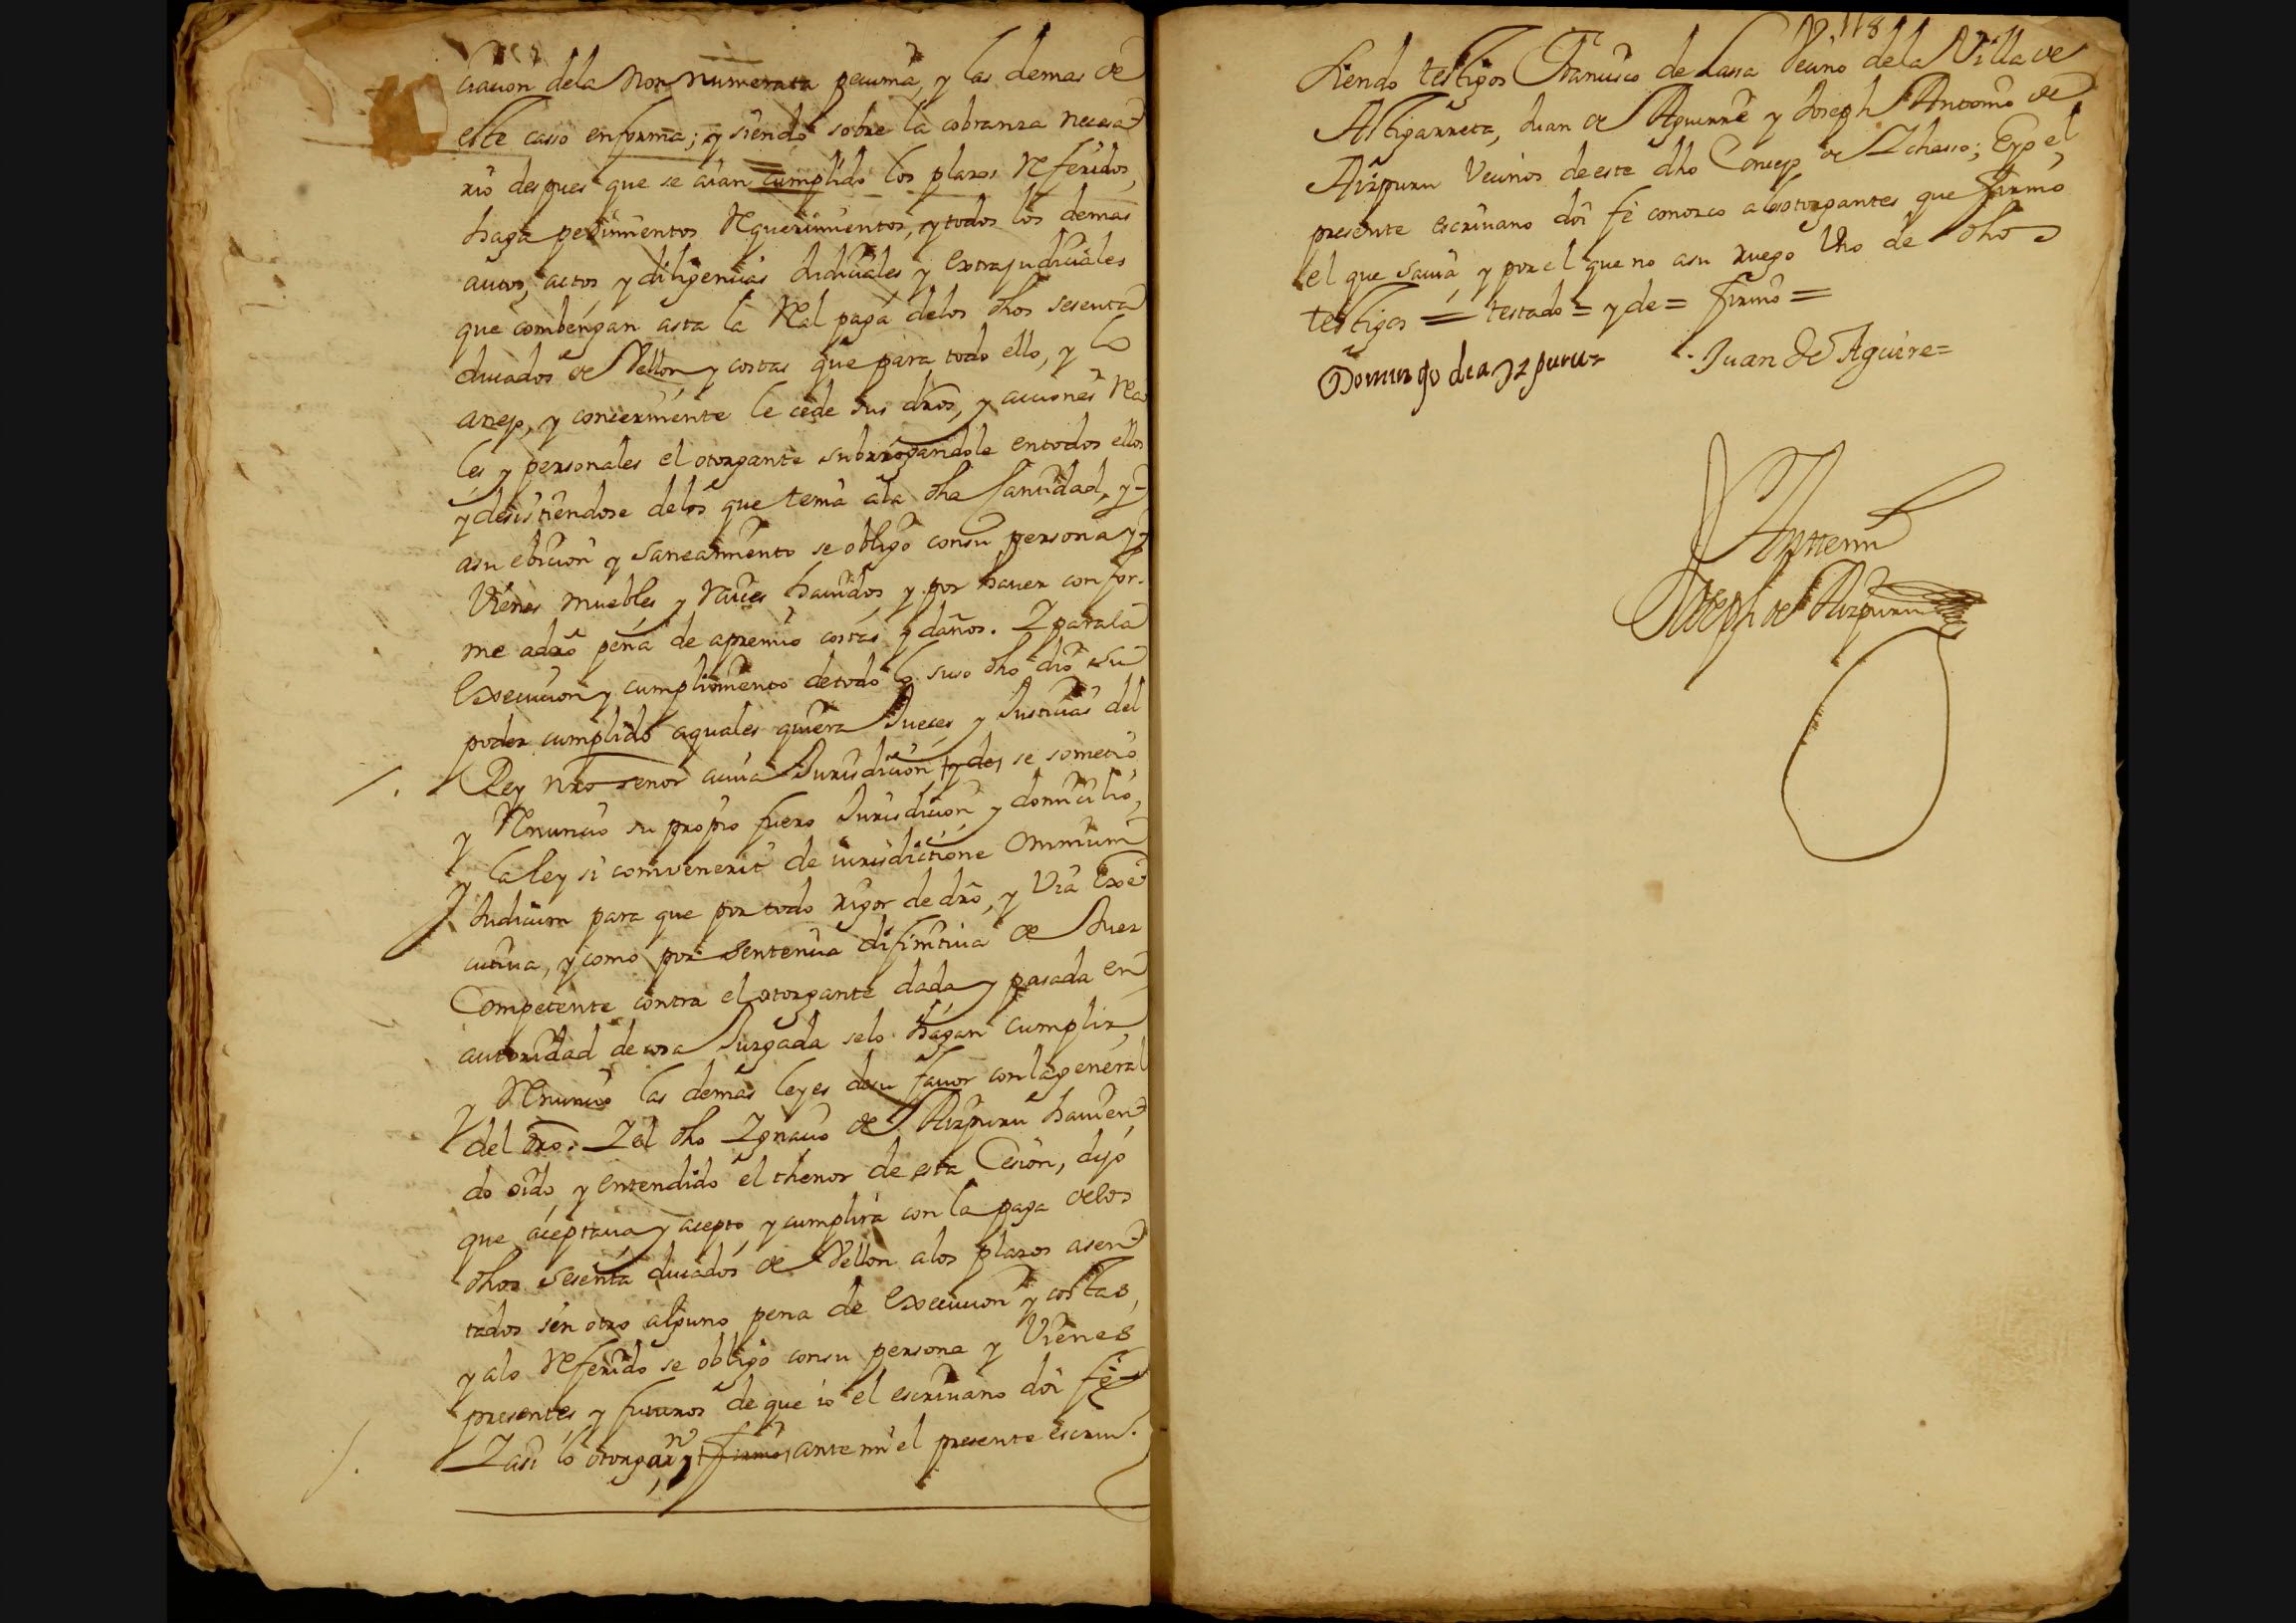 ciacion dela non numerata pecunia, y las demas de
este casso enforma; y siendo sobre la cobranza necesa-
rio despues que se aian cumplido los plazos Referidos,
haga pedimientos Requerimientos, y todos los demas
autos, actos y diligencias Judiciales y Extrajudiciales
que combengan asta la Real paga delos dhos sesenta
ducados de Vellon y costas que para todo ello, y lo
anejo, y concerniente le cede sus dros, y acciones Rea
les y personales el otorgante subrrogandole entodos ellos
y desistiendose delos que tenia ala dha Cantidad, y-
asu ebicion y saneamiento se obligo consu persona y-
Vienes muebles y Raices hauidos y por hauer confor-
me adro pena de apremio costas y daños. Y parala
Execucion y cumplimiento detodo lo suso dho dio su
poder cumplido aquales quiera Jueces y Justicias del
Rey nro señor acuia Jurisdicion y de se sometio
y Renuncio su propio fuero Jurisdicion y domicilio,
y la ley si convenerit de iurisdictione Omnium
Judicum para que por todo rigor de dro, y Via Exe
cutiua, y como por sentencia difinitiua de Juez
Competente contra el otorgante dada y pasada en
autoridad de cosa Juzgada selo hagan cumplir,
y Renuncio las demas leyes desu fauor con la general
del dro. Y el dho Ygnacio de Aizpuru hauien-
do oido, y entendido el thenor de esta Cesion, dijo
que aceptaua y acepto, y cumplira con la paga delos
dhos sesenta ducados de Vellon alos plazos asen-
tados sin otro alguno pena de Execucion y costas,
y alo Referido se obligo consu persona y Vienes
presentes y futuros de que io el escriuano doi fe
Y asi lo otorgaron y firmo ante mi el presente escriu.
118
Siendo testigos Francisco de Lassa Vecino dela Villa de
Astigarreta, Juan de Aguirre y Joseph Antonio de
Aizpuru Vecinos de este dho Concejo de Ychasso; E yo el
presente escriuano doi fe conozco alos otorgantes que firmo
el que sauia, y por el que no asu ruego Uno de dhos
testigos = testado = y de = firmo =
Domingo de ayzpuru
Juan de Aguirre=
Antemi
Joseph de Aizpuru